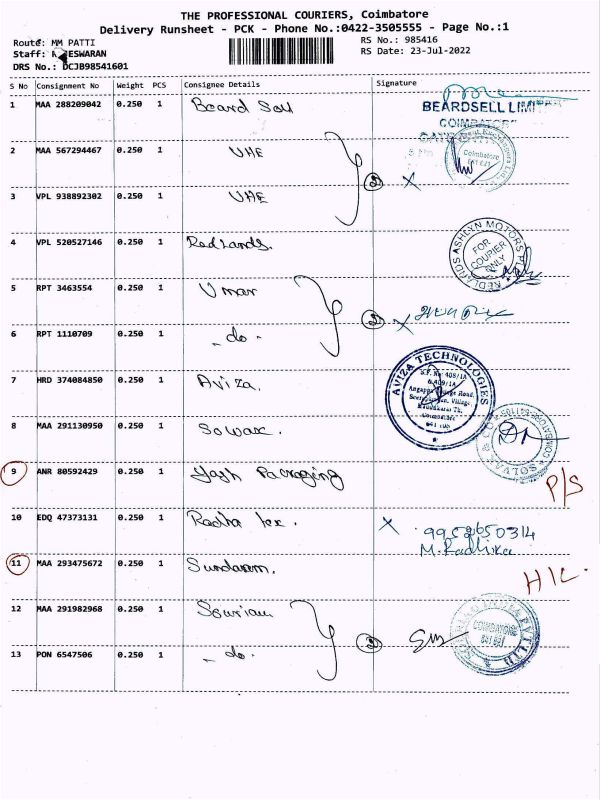 THE PROFESSIONAL COURIERS, Coimbatore
Delivery Runsheet - PCK - Phone No.:0422-3505555 - Page No.:1
Route: MM PATTI
RS No.: 985416
Staff: ESWARAN
RS Date: 23-Jul-2022
DRS No.: DCJB98541601
S No Consignment No Weight PCS Consignee Details Signature
1 MAA 288209042 0.250 1 Beard Sell
BEARDSELL LIMIT
COIMBATOR
2 MAA 567294467 0.250 1 UHE
2 X
Coimbatore
3 VPL 938892302 0.250 1 UHE
4 VPL 520527146 0.250 1 Redlands.
REDLANDS ASHLYN MOTORS P
FOR
COURIER
ONLY
5 RPT 3463554 0.250 1 Umar
2 X
6 RPT 1110709 0.250 1 - do -
7 HRD 374084850 0.250 1 Aviza.
AVIZA TECHNOLOGIES
S.F. No: 409/1A
8 MAA 291130950 0.250 1 Sowax.
9 ANR 80592429 0.250 1 Yash Packaging
P/S
10 EDQ 47373131 0.250 1 Radha tex.
X 9952650314
M. Radhika
11 MAA 293475672 0.250 1 Sundaram.
12 MAA 291982968 0.250 1
2
COIMBATORE
13 PON 6547506 0.250 1 - do -